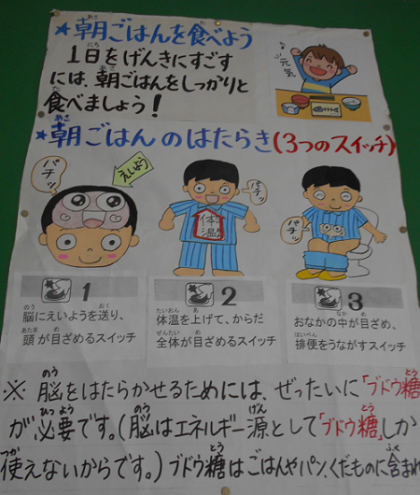 ★朝ごはんを食べよう
1日をげんきにすごす
には、朝ごはんをしっかりと
食べましょう!
元気
★朝ごはんのはたらき(3つのスイッチ)
パチッ
えいよう
パチッ
体温
パチッ
1
脳にえいようを送り、
頭が目ざめるスイッチ
2
体温を上げて、からだ
全体が目ざめるスイッチ
3
おなかの中が目ざめ、
排便をうながすスイッチ
※脳をはたらかせるためには、ぜったいに「ブドウ糖」
が必要です。(脳はエネルギー源として「ブドウ糖」しか
使えないからです。)ブドウ糖はごはんやパン、くだものに含まれ